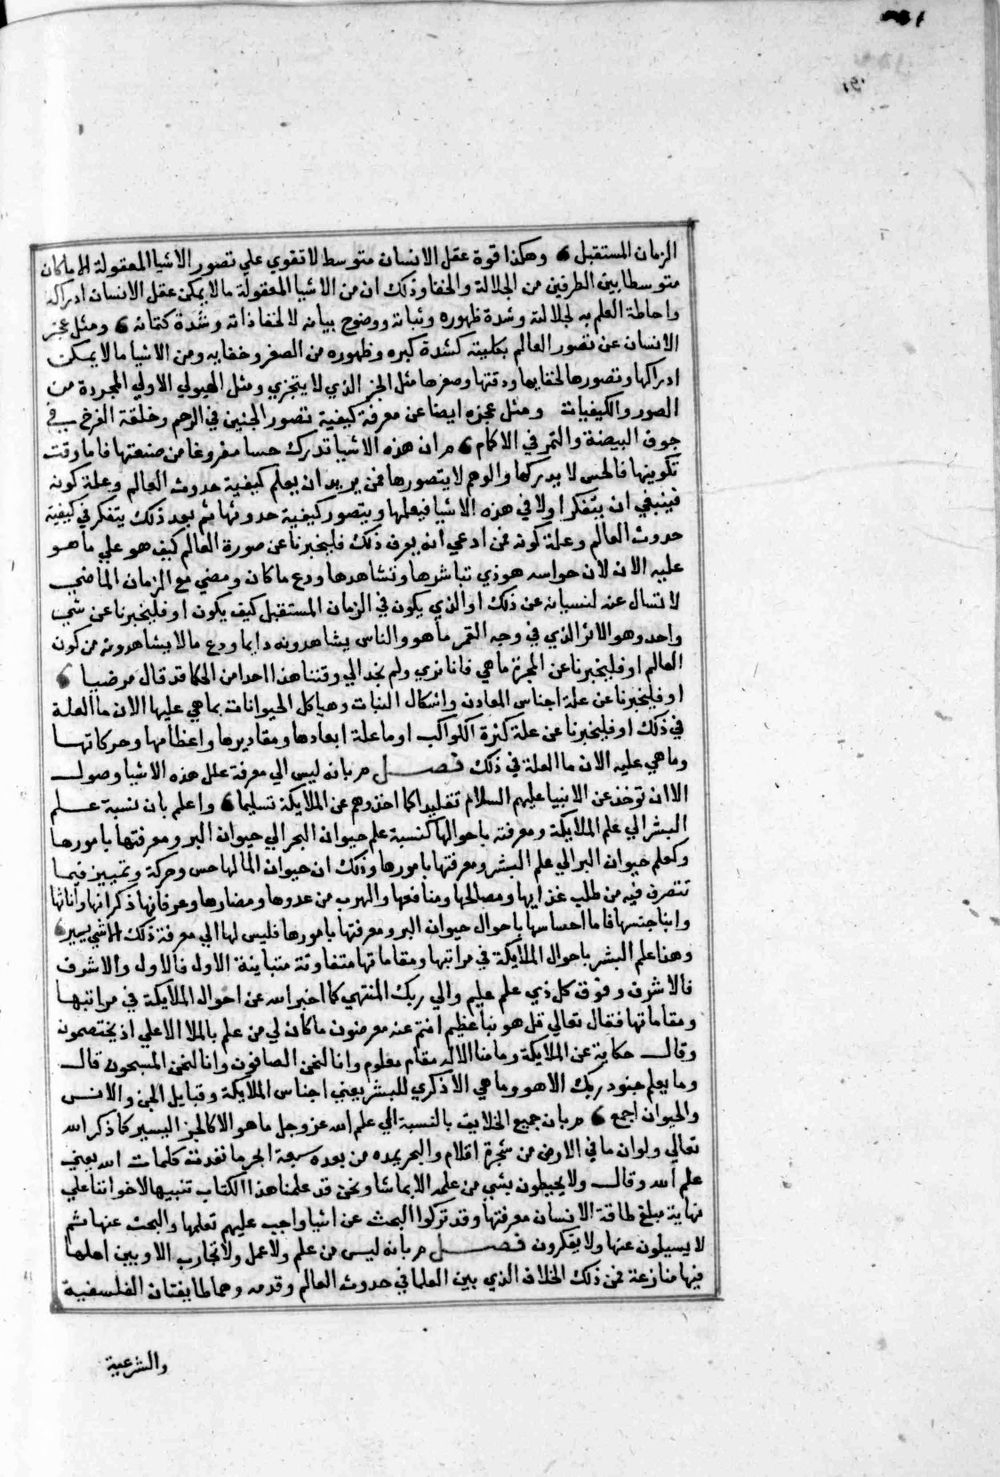 الزمان المستقبل وهكذا قوة عقل الانسان متوسط لا تقوي علي تصور الاشيا المعقولة الا ما كان
متوسطا بين الطرفين من الجلالة والخفا وذلك ان من الاشيا المعقولة ما لا يمكن عقل الانسان ادراكه
واحاطة العلم به لجلالته وشدة ظهوره وثباته ووضوح بيانه لا لخفا ذاته وشدة كتمانه ومثل عجز
الانسان عن تصور العالم بكليته كشدة كبره وظهوره من الصغر وخفايه ومن الاشيا ما لا يمكن
ادراكها وتصورها لخفايها ودقتها وصغرها مثل الجز الذي لا يتجزي ومثل الهيولي الاولي المجردة من
الصور والكيفيات ومثل عجزه ايضا عن معرفة كيفية تصور الجنين في الرحم وخلقة الفرخ في
جوف البيضة والثمر في الاكمام مر ان هذه الاشيا تدرك حسا مفروغا من صنعتها فاما وقت
تكوينها فالحس لا يدركها والوهم لا يتصورها فمن يريد ان يعلم كيفية حدوث العالم وعلة كونه
فينبغي ان يتفكر اولا في هذه الاشيا فيعلمها ويتصور كيفية حدوثها ثم بعد ذلك يتفكر في كيفية
حدوث العالم وعلة كونه فمن ادعي انه يعرف ذلك فليخبرنا عن صورة العالم كيف هو علي ما هو
عليه الان لان حواسه هوذي تباشرها وتشاهدها ودع ما كان ومضي مع الزمان الماضي
لا تسال عنه لنسيانه عن ذلك او الذي يكون في الزمان المستقبل كيف يكون او فليخبرنا عن شي
واحد وهو الاثر الذي في وجه القمر ما هو والناس يشاهدونه دايما ودع ما لا يشاهدونه من كون
العالم او فليخبرنا عن المجرة ما هي فانا نري ولم نجد الي وقتنا هذا احدا من الحكما قد قال مرضيا
او فليخبرنا عن علة اجناس المعادن واشكال النبات وهياكل الحيوانات بما هي عليها الان ما العلة
في ذلك او فليخبرنا عن علة كثرة الكواكب او ما علة ابعادها ومقاديرها واعظامها وحركاتها
وما هي عليه الان ما العلة في ذلك فصل مر بانه ليس الي معرفة علل هذه الاشيا وصول
الا ان توخذ عن الانبيا عليهم السلام تقليدا كما اخذوهم عن الملايكة تسليما واعلم بان نسبة علم
البشر الي علم الملايكة ومعرفته باحوالها كنسبة علم حيوان البحر الي حيوان البر ومعرفتها بامورها
وكعلم حيوان البر الي علم البشر ومعرفتها بامورها وذلك ان حيوان الما لها حس وحركة وتمييز فيما
تتصرف فيه من طلب غذايها ومصالحها ومنافعها والهرب من عدوها ومضارها وعرفانها ذكرانها واناثها
وابنا جنسها فاما احساسها باحوال حيوان البر ومعرفتها بامورها فليس لها الي معرفة ذلك الا شي يسير
وهذا علم البشر باحوال الملايكة في مراتبها ومقاماتها متفاوتة متباينة الاول فالاول والاشرف
فالاشرف وفوق كل ذي علم عليم والي ربك المنتهي كما اخبر الله عن احوال الملايكة في مراتبها
ومقاماتها فقال تعالي قل هو نبا عظيم انتم عنه معرضون ما كان لي من علم بالملا الاعلي اذ يختصمون
وقال حكاية عن الملايكة وما منا الا له مقام معلوم وانا لنحن الصافون وانا لنحن المسبحون قال
وما يعلم جنود ربك الا هو وما هي الا ذكري للبشر يعني اجناس الملايكة وقبايل الجن والانس
والحيوان اجمع مر بان جميع الخلايق بالنسبة الي علم الله عز وجل ما هو الا كالجز اليسير كما ذكر الله
تعالي ولو ان ما في الارض من شجرة اقلام والبحر يمده من بعده سبعة ابحر ما نفدت كلمات الله يعني
علم الله وقال ولا يحيطون بشي من علمه الا بما شا ونحن قد علمنا هذا الكتاب تنبيها لاخواننا علي
نهاية مبلغ طاقة الانسان معرفتها وقد تركوا البحث عن اشيا واجب عليهم تعلمها والبحث عنها ثم
لا يسيلون عنها ولا يفكرون فصل مر بانه ليس من علم ولا عمل ولا تجارب الا وبين اهلها
فيها منازعة فمن ذلك الخلاف الذي بين العلما في حدوث العالم وقدمه وهما طايفتان الفلسفية
والشرعية